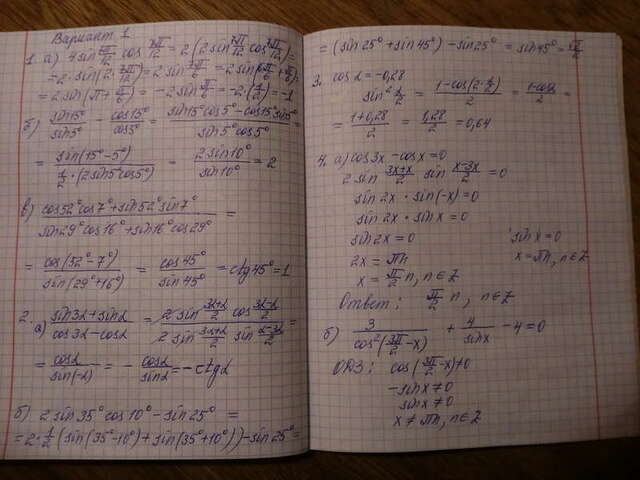 Вариант 1
1. а) 4sin 7π/12 cos 7π/12 = 2(2sin 7π/12 cos 7π/12) =
= 2·sin(2·7π/12) = 2sin 7π/6 = 2sin(6π/6 + π/6) =
= 2sin(π + π/6) = -2sin π/6 = -2·(1/2) = -1
б) sin15°/sin5° - cos15°/cos5° = (sin15°cos5° - cos15°sin5°)/(sin5°cos5°) =
= sin(15°-5°)/(1/2·(2sin5°cos5°)) = 2sin10°/sin10° = 2
в) (cos52°cos7° + sin52°sin7°)/(sin29°cos16° + sin16°cos29°) =
= cos(52°-7°)/sin(29°+16°) = cos45°/sin45° = ctg45° = 1
2. а) (sin3α + sinα)/(cos3α - cosα) = (2sin (3α+α)/2 cos (3α-α)/2)/(2sin (3α+α)/2 sin (α-3α)/2) =
= cosα/sin(-α) = - cosα/sinα = -ctgα
б) 2sin35°cos10° - sin25° =
= 2·1/2(sin(35°-10°) + sin(35°+10°)) - sin25° =
= (sin25° + sin45°) - sin25° = sin45° = √2/2
3. cosα = -0,28
sin² α/2 = (1-cos(2·α/2))/2 = (1-cosα)/2 =
= (1+0,28)/2 = 1,28/2 = 0,64
4. а) cos3x - cosx = 0
2sin (3x+x)/2 sin (x-3x)/2 = 0
sin2x · sin(-x) = 0
sin2x · sinx = 0
sin2x = 0 sinx = 0
2x = πn x = πn, n∈Z
x = π/2 n, n∈Z
Ответ: π/2 n, n∈Z
б) 3/cos²(3π/2 - x) + 4/sinx - 4 = 0
ОДЗ: cos(3π/2 - x) ≠ 0
-sinx ≠ 0
sinx ≠ 0
x ≠ πn, n∈Z